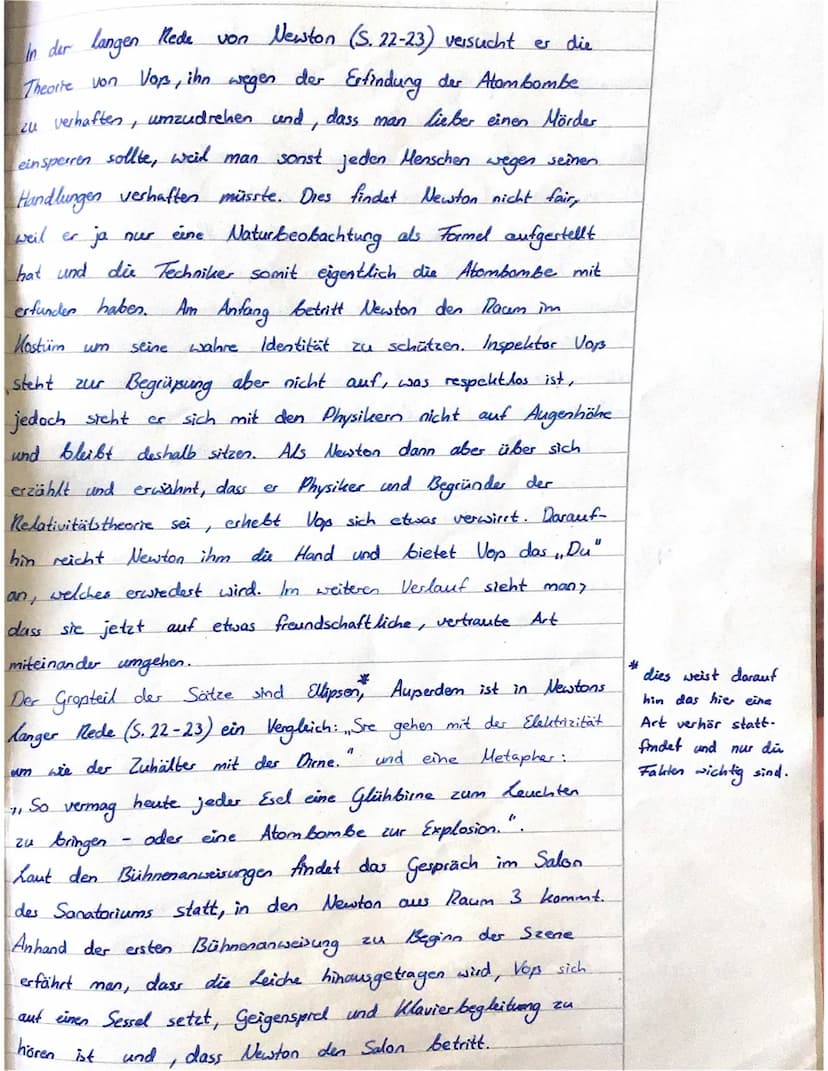 In der langen Rede von Newton (S. 22-23) versucht er die
Theorie von Voß, ihn wegen der Erfindung der Atombombe
zu verhaften, umzudrehen und, dass man lieber einen Mörder
einsperren sollte, weil man sonst jeden Menschen wegen seinen
Handlungen verhaften müsste. Dies findet Newton nicht fair,
weil er ja nur eine Naturbeobachtung als Formel aufgestellt
hat und die Techniker somit eigentlich die Atombombe mit
erfunden haben. Am Anfang betritt Newton den Raum im
Kostüm um seine wahre Identität zu schützen. Inspektor Voß
steht zur Begrüßung aber nicht auf, was respektlos ist,
jedoch sieht er sich mit den Physikern nicht auf Augenhöhe
und bleibt deshalb sitzen. Als Newton dann aber über sich
erzählt und erwähnt, dass er Physiker und Begründer der
Relativitätstheorie sei, erhebt Voß sich etwas verwirrt. Darauf-
hin reicht Newton ihm die Hand und bietet Voß das „Du"
an, welches erwiedest wird. Im weiteren Verlauf sieht man,
dass sie jetzt auf etwas freundschaftliche, vertraute Art
miteinander umgehen.
Der Großteil der Sätze sind Ellipsen,* Außerdem ist in Newtons
langer Rede (S. 22-23) ein Vergleich: „Sie gehen mit der Elektrizität
um wie der Zuhälter mit der Dirne." und eine Metapher:
„So vermag heute jeder Esel eine Glühbirne zum Leuchten
zu bringen - oder eine Atombombe zur Explosion.".
Laut den Bühnenanweisungen findet das Gespräch im Salon
des Sanatoriums statt, in den Newton aus Raum 3 kommt.
Anhand der ersten Bühnenanweisung zu Beginn der Szene
erfährt man, dass die Leiche hinausgetragen wird, Voß sich
auf einen Sessel setzt, Geigenspiel und Klavierbegleitung zu
hören ist und, dass Newton den Salon betritt.
* dies weist darauf
hin das hier eine
Art verhör statt-
findet und nur die
Fakten wichtig sind.